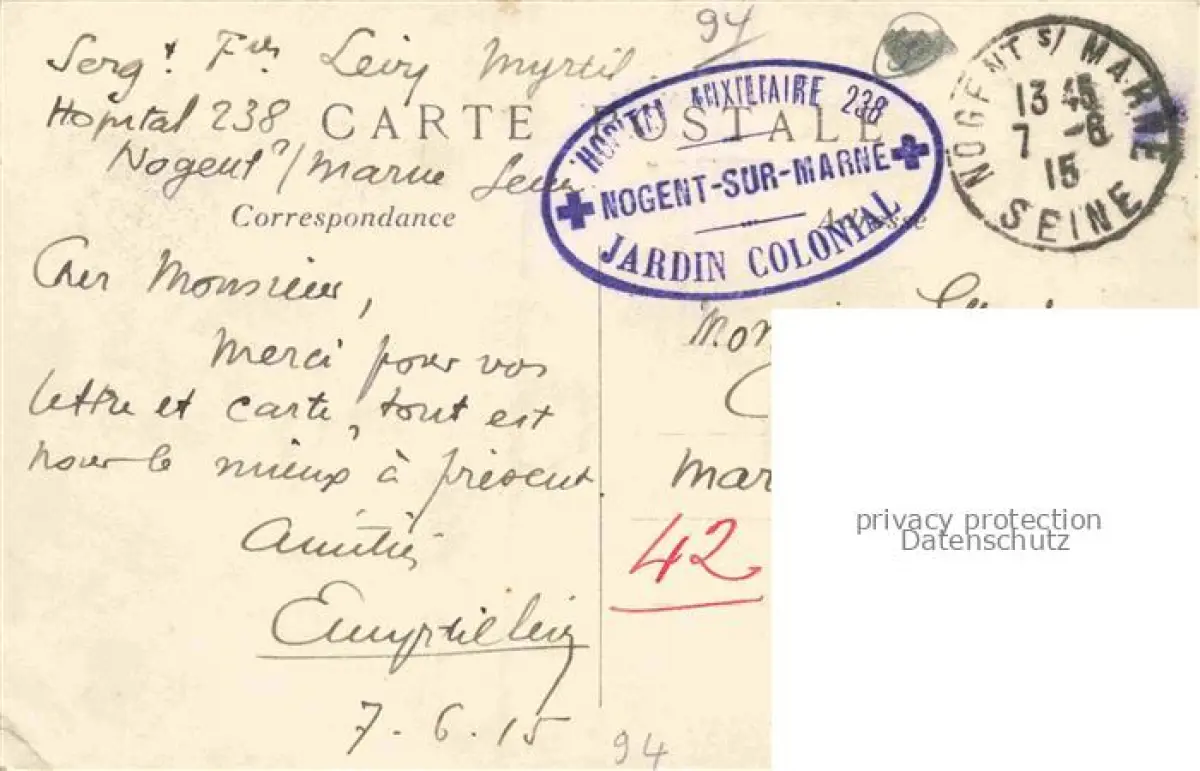 94
Sergt Frs Levy Myrtil
Hôpital 238
Nogent s/ Marne Seine
CARTE POSTALE
HOPITAL AUXILIAIRE 238
NOGENT-SUR-MARNE
JARDIN COLONIAL
NOGENT S/ MARNE
13 45
7 -6
15
SEINE
Correspondance
Adresse
Cher Monsieur,
Merci pour vos
lettre et carte, tout est
pour le mieux à présent.
Amitiés
Emyrtil Levy
7.6.15
Mon
Mar
42
94
privacy protection
Datenschutz